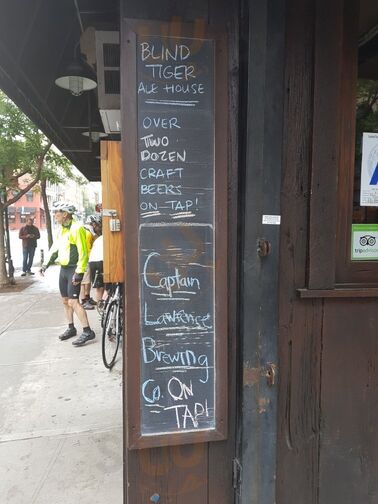 BLIND
TIGER
ALE HOUSE
OVER
TWO
DOZEN
CRAFT
BEERS
ON TAP!
Captain
Lawrence
Brewing
Co. ON
TAP!
tripadvisor